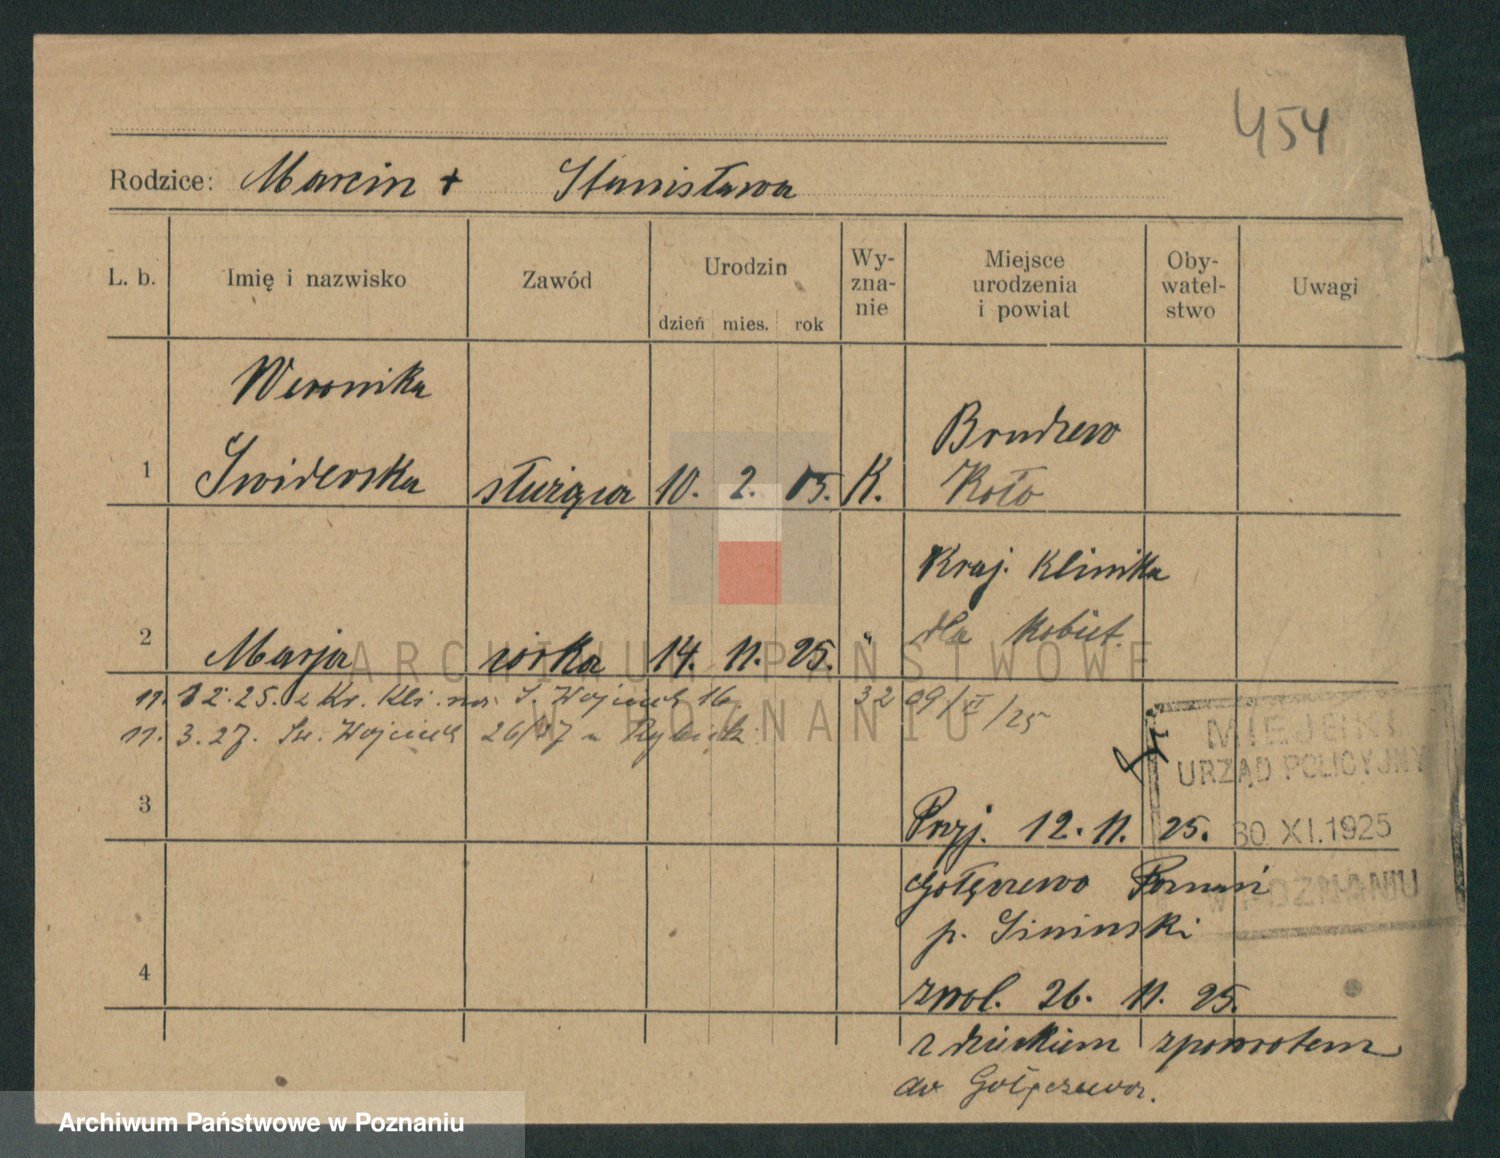 454
Rodzice: Marcin + Stanisława
L. b. Imię i nazwisko Zawód Urodzin dzień mies. rok Wy-zna-nie Miejsce urodzenia i powiat Oby-watel-stwo Uwagi
Weronika
1 Swiderska służąca 10. 2. 05. K. Brudzew
Koło
Kraj. Klinika
dla Kobiet.
2 Marja córka 14. 11. 25. "
11. 12. 25. z Kr. Kli. na S. Wojciech 16 32 09/XII/25
11. 3. 27. Św. Wojciech 26/27 u
MIEJSKI
URZĄD POLICYJNY
3 Przyj. 12. 11. 25.
30 XI. 1925
Gołęczewo Poznań
W POZNANIU
p.
4 zwol. 26. 11. 25.
z dzieckiem zpowrotem
do Gołęczewa.
ARCHIWUM PAŃSTWOWE
W POZNANIU
Archiwum Państwowe w Poznaniu